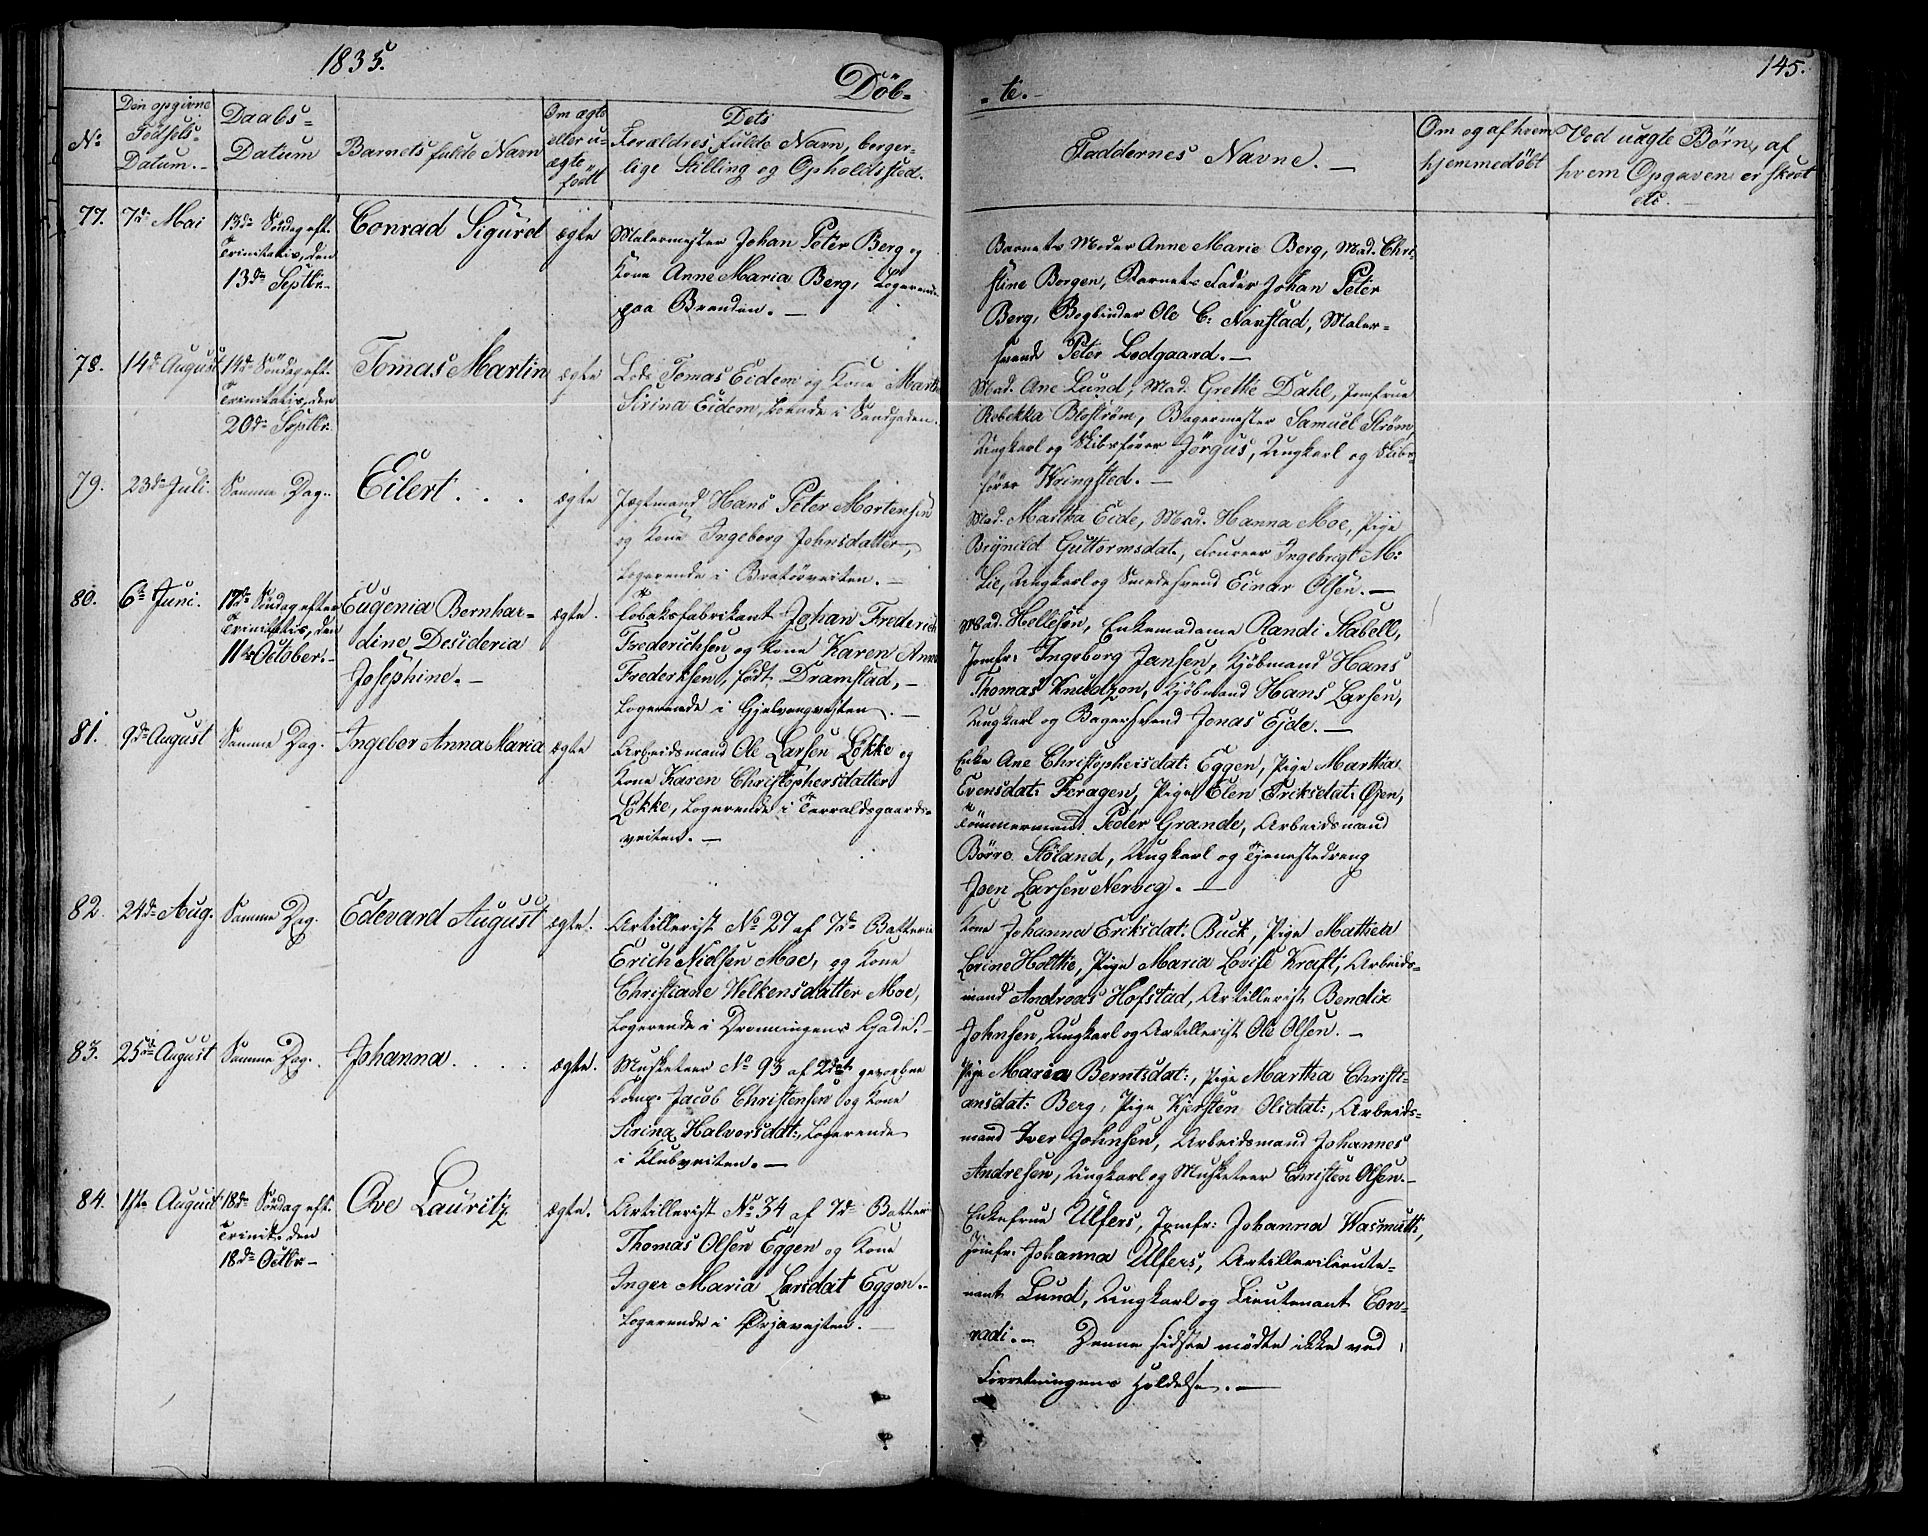 1835.
Döb-
-te.-
145.
No
Den opgivne Födsels-Datum.-
Daabs-Datum
Barnets fulde Navn
Om ægte eller uægte födt
Dets Forældres fulde Navn, borgerlige Stilling og Opholdssted.
Faddernes Navne.-
Om og af hvem hjemmedöbt
Ved uægte Börn, af hvem Opgaven er skeet etc.-
77.
7de Mai
13de Söndag eft.
Trinitatis, den
13de Septbr.
Conrad Sigurd
ægte
Malermester Johan Peter Berg og
Kone Anne Maria Berg, Logerende
paa Branden.-
Barnets Moder Anne Marie Berg, Mad. Chri-
stine Borgen, Barnets Fader Johan Peter
Berg, Bogbinder Ole C: Nanstad, Maler-
svend Peter Lodgaard.-
78.
14de August
14de Söndag eft.
Trinitatis, den
20de Septbr.
Tomas Martin
ægte
Lods Tomas Eidem og Kone Marth
Sirina Eidem, boende i Sandgaden.
Mad. Ane Lund, Mad. Grethe Dahl, Jomfrue
Rebekka Blostrøm, Bagermester Samuel Strøm,
Ungkarl og Skibsfører Jörgus, Ungkarl og Skibs-
fører Wringsted.-
79.
23de Juli.
Samme Dag.
Eilert...
ægte
Jægtmand Hans Peter Mortensen
og Kone Ingeborg Johnsdatter,
Logerende i Bratörveiten.-
Mad. Martha Eide, Mad. Hanna Moe, Pige
Brynild Guttormsdat., Foureer Ingebrigt M:
Lie, Ungkarl og Smedesvend Einar Olsen.-
80.
6te Juni.
17de Söndag efter
Trinitatis, den
11te October.-
Eugenia Bernhar-
dine Desideria
Josephine.-
ægte.
Tobaksfabrikant Johan Frederich
Frederichsen og Kone Karen Anna
Frederksen, født Dramstad,-
Logerende i Gjelvangvejten.-
Mad. Hellesen, Enkemadame Randi Stabell,
Jomfr: Ingeborg Jansen, Kjöbmand Hans
Thomas Knudtzon, Kjöbmand Hans Larsen,
Ungkarl og Bagersvend Jonas Ejde.-
81.
9de August
Samme Dag.
Ingebor Anna Maria
ægte
Arbeidsmand Ole Larsen Løkke og
Kone Karen Christophersdatter
Løkke, Logerende i Terraldsgaards-
veiten.-
Enke Ane Christophersdat: Eggen, Pige Marthia
Evensdat: Feragen, Pige Elen Eriksdat: Øzen,
Tömmermand Peder Grande, Arbeidsmand
Börre Stöland, Ungkarl og Tjenestedreng
Joen Larsen Nerbog.-
82.
24de Aug.
Samme Dag.
Edevard August
ægte.
Artillerist No 27 af 7de Batterie
Erich Nielsen Moe, og Kone
Christiane Welkensdatter Moe,
Logerende i Dronningens Gade.-
Kone Johanna Eriksdat. Buck, Pige Mathea
Lorine Holthe, Pige Maria Lovise Kraft, Arbeids-
mand Andreas Hofstad, Artillerist Bendix
Johnsen, Ungkarl og Artillerist Ole Olsen.-
83.
25de August
Samme Dag.
Johanna....
ægte.
Musketeer No 93 af 2det gevorbne
Komp. Jacob Christensen og Kone
Sirina Halvorsdat., Logerende
i Klubveiten.-
Pige Maria Berntsdat:, Pige Martha Christi-
ansdat: Berg, Pige Kjersten Olsdat:, Arbeids-
mand Iver Johnsen, Arbeidsmand Johannes
Andresen, Ungkarl og Musketeer Christen Olsen.-
84.
11te August
18de Söndag eft.
Trinit. den
18de Octbr-
Ove Lauritz
ægte.
Artillerist No 34 af 7de Batteri
Thomas Olsen Eggen og Kone
Inger Maria Larsdat Eggen.-
Logerende i Ørjavejten.-
Enkefrue Ulfers, Jomfr: Johanna Wasmuth,
Jomfr: Johanna Ulfers, Artillerilieute-
nant Lund, Ungkarl og Lieutenant Con-
radi.- Denne sidste mødte ikke ved
Forretningens Holdelse.-